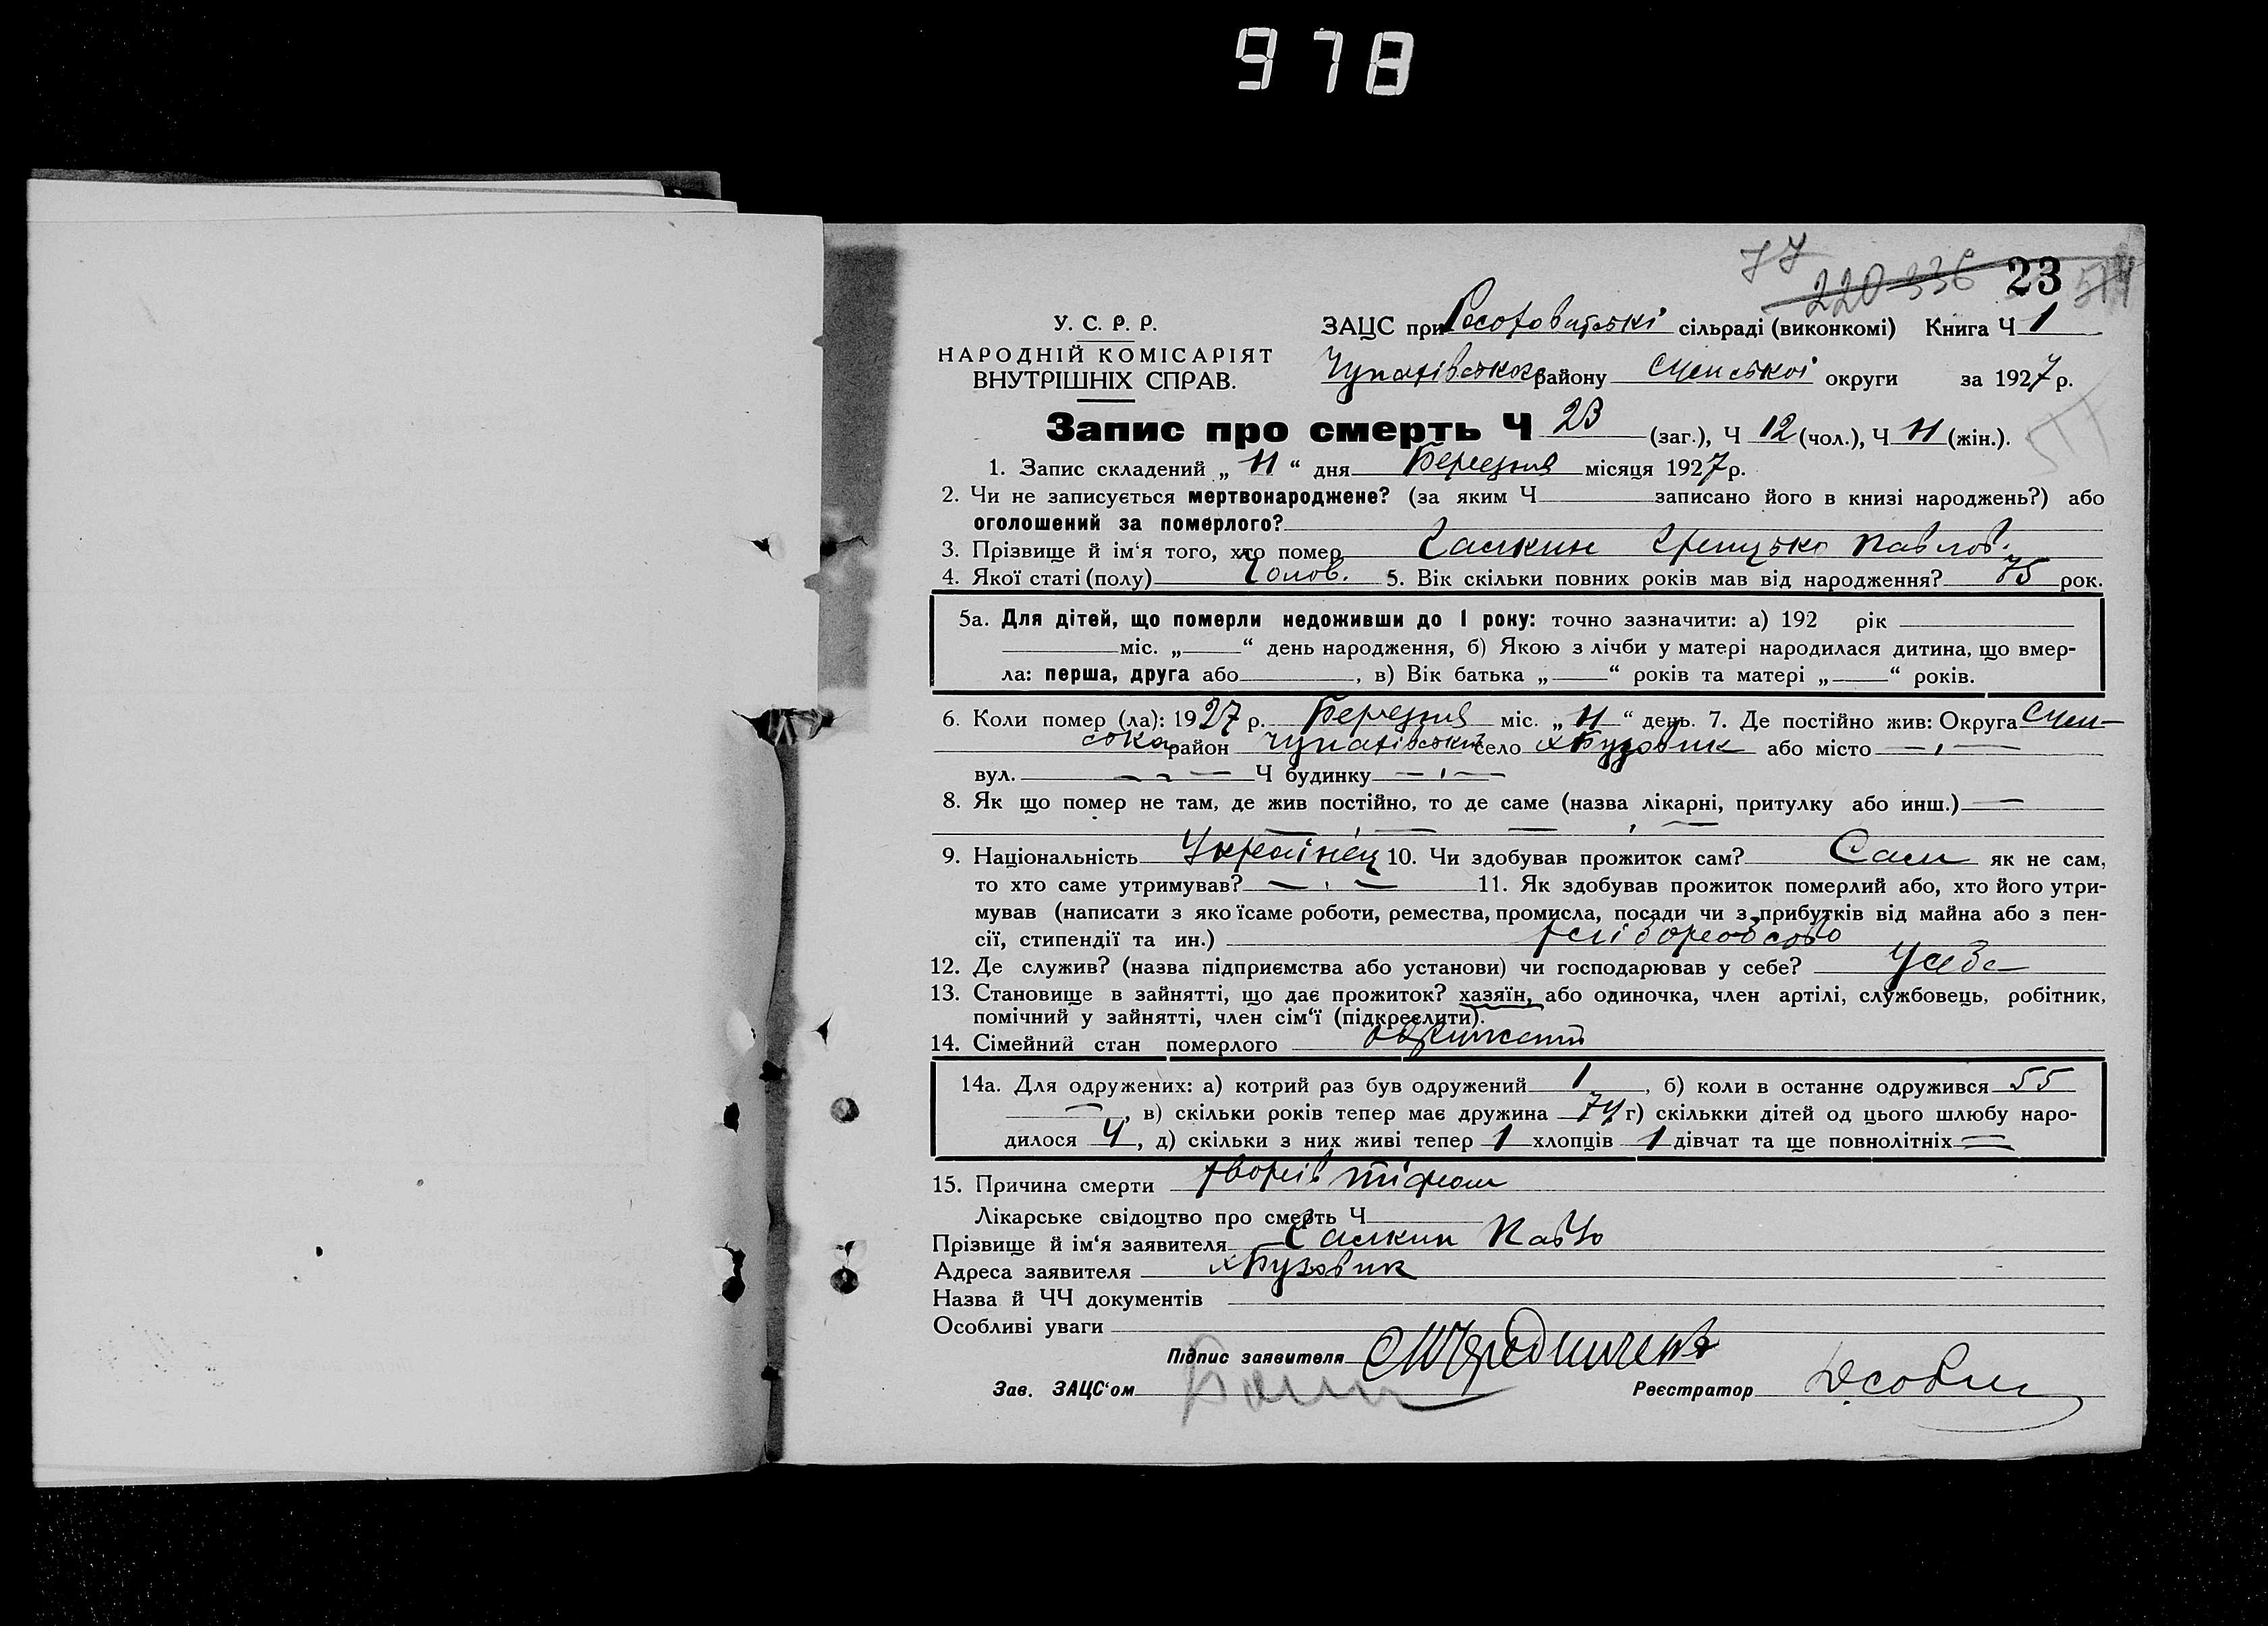 978
77
220 336 23
У. С. Р. Р.
НАРОДНІЙ КОМІСАРІЯТ
ВНУТРІШНІХ СПРАВ.
ЗАЦС при сільраді (виконкомі) Книга Ч 1
району Сумської округи за 1927 р.
Запис про смерть Ч 23 (заг.), Ч 12 (чол.), Ч 11 (жін.).
1. Запис складений „ 11 “ дня Березня місяця 1927 р.
2. Чи не записується мертвонароджене? (за яким Ч записано його в книзі народжень?) або
оголошений за померлого?
3. Прізвище й ім‘я того, хто помер Грицько Павлов.
4. Якої статі (полу) Чолов. 5. Вік скільки повних років мав від народження? 75 рок.
5а. Для дітей, що померли недоживши до 1 року: точно зазначити: а) 192 рік
міс. „ “ день народження, б) Якою з лічби у матері народилася дитина, що вмер-
ла: перша, друга або , в) Вік батька „ “ років та матері „ “ років.
6. Коли помер (ла): 1927 р. Березня міс. „ 11 “ день. 7. Де постійно жив: Округа Сум-
ська район село х Бузовик або місто
вул. Ч будинку
8. Як що помер не там, де жив постійно, то де саме (назва лікарні, притулку або инш.)
9. Національність Українец 10. Чи здобував прожиток сам? Сам як не сам,
то хто саме утримував? 11. Як здобував прожиток померлий або, хто його утри-
мував (написати з яко їсаме роботи, ремества, промисла, посади чи з прибутків від майна або з пен-
сії, стипендії та ин.) хліборобство
12. Де служив? (назва підприємства або установи) чи господарював у себе? У себе
13. Становище в зайнятті, що дає прожиток? хазяїн, або одиночка, член артілі, службовець, робітник,
помічний у зайнятті, член сім‘ї (підкреслити).
14. Сімейний стан померлого
14а. Для одружених: а) котрий раз був одружений 1 , б) коли в останнє одружився 55
, в) скільки років тепер має дружина 74 г) скількки дітей од цього шлюбу наро-
дилося 4 , д) скільки з них живі тепер 1 хлопців 1 дівчат та ще повнолітніх
15. Причина смерти хворів тіфом
Лікарське свідоцтво про смерть Ч
Прізвище й ім‘я заявителя
Адреса заявителя х Бузовик
Назва й ЧЧ документів
Особливі уваги
Підпис заявителя
Зав. ЗАЦС‘ом
Реєстратор